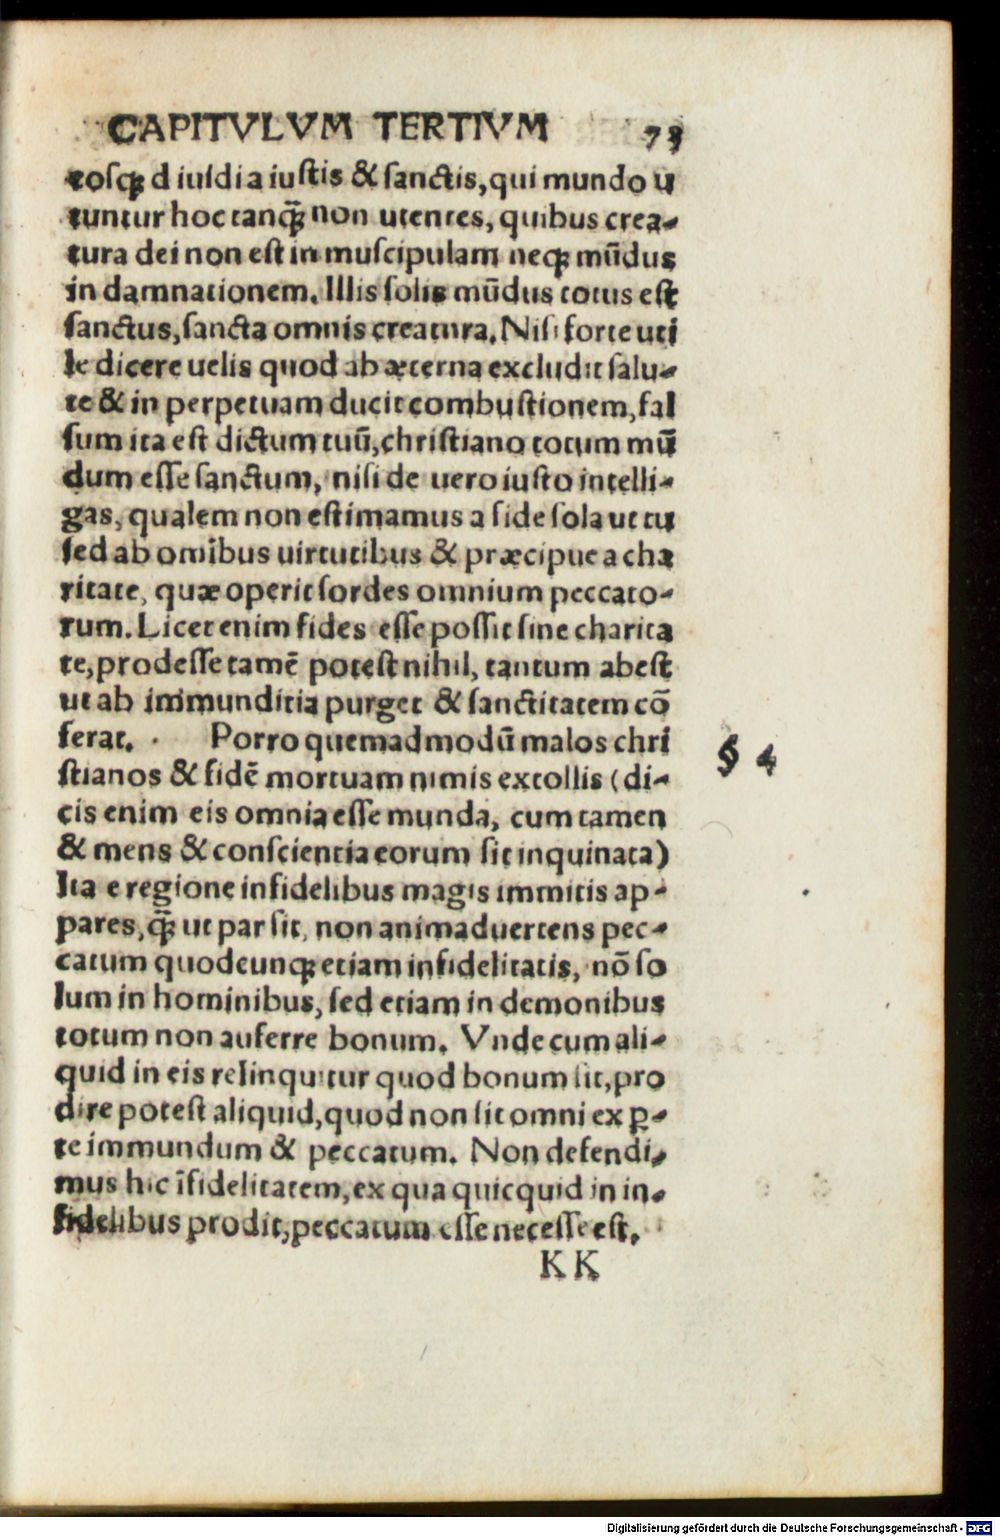 CAPITVLVM TERTIVM 73
tosqꝫ d iuſdi a iuſtis & ſanctis, qui mundo u
tuntur hoc tanqꝫ̃ non utentes, quibus crea-
tura dei non eſt in muſcipulam neqꝫ mūdus
in damnationem. Illis ſolis mūdus totus eſt
ſanctus, ſancta omnis creatura. Niſi forte uti
le dicere uelis quod ab æterna excludit ſalu-
te & in perpetuam ducit combuſtionem, fal
ſum ita eſt dictum tuū, chriſtiano totum mū
dum eſſe ſanctum, niſi de uero iuſto intelli-
gas, qualem non eſtimamus a fide ſola ut tu
ſed ab omībus uirtutibus & præcipue a cha
ritate, quæ operit ſordes omnium peccato-
rum. Licet enim fides eſſe poſſit ſine charita
te, prodeſſe tamē poteſt nihil, tantum abeſt
ut ab immunditia purget & ſanctitatem cō
ferat. Porro quemadmodū malos chri
ſtianos & fidē mortuam nimis extollis (di-
cis enim eis omnia eſſe munda, cum tamen
& mens & conſcientia eorum ſit inquinata)
Ita e regione infidelibus magis immitis ap-
pares, qꝫ̃ ut par ſit, non animaduertens pec-
catum quodcunqꝫ etiam infidelitatis, nō ſo
lum in hominibus, ſed etiam in demonibus
totum non auferre bonum. Vnde cum ali-
quid in eis relinquitur quod bonum ſit, pro
dire poteſt aliquid, quod non ſit omni ex ꝑ-
te immundum & peccatum. Non defendi-
mus hic īfidelitatem, ex qua quicquid in in-
fidelibus prodit, peccatum eſſe neceſſe eſt.
KK
§ 4
Digitalisierung gefördert durch die Deutsche Forschungsgemeinschaft - DFG